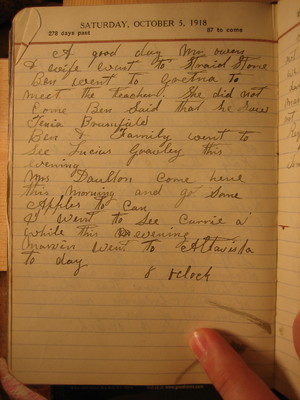 SATURDAY, OCTOBER 5, 1918
278 days past 87 to come
A good day Mr Owen
& wife went to Store
Ben went to Gretna to
meet the teacher. She did not
Come Ben Said that he Saw
Texia
Ben & Family went to
See Lucius this
evening
Mrs Daulton Come here
this Morning and go Some
Apples to Can
I went to See Carrie a
while this evening
Marvin went to Altavista
to day
8 oclock